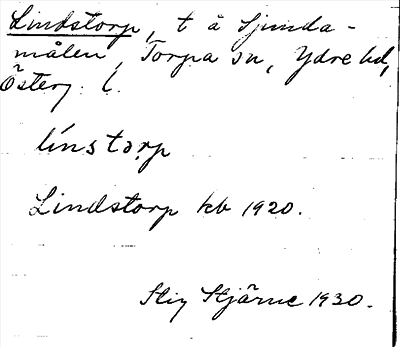 Lindstorp, t å Sjunda-
målen, Torpa sn, Ydre hd,
Österg. l.
línstɑrp
Lindstorp kb 1920.
Stig Stjärne 1930.